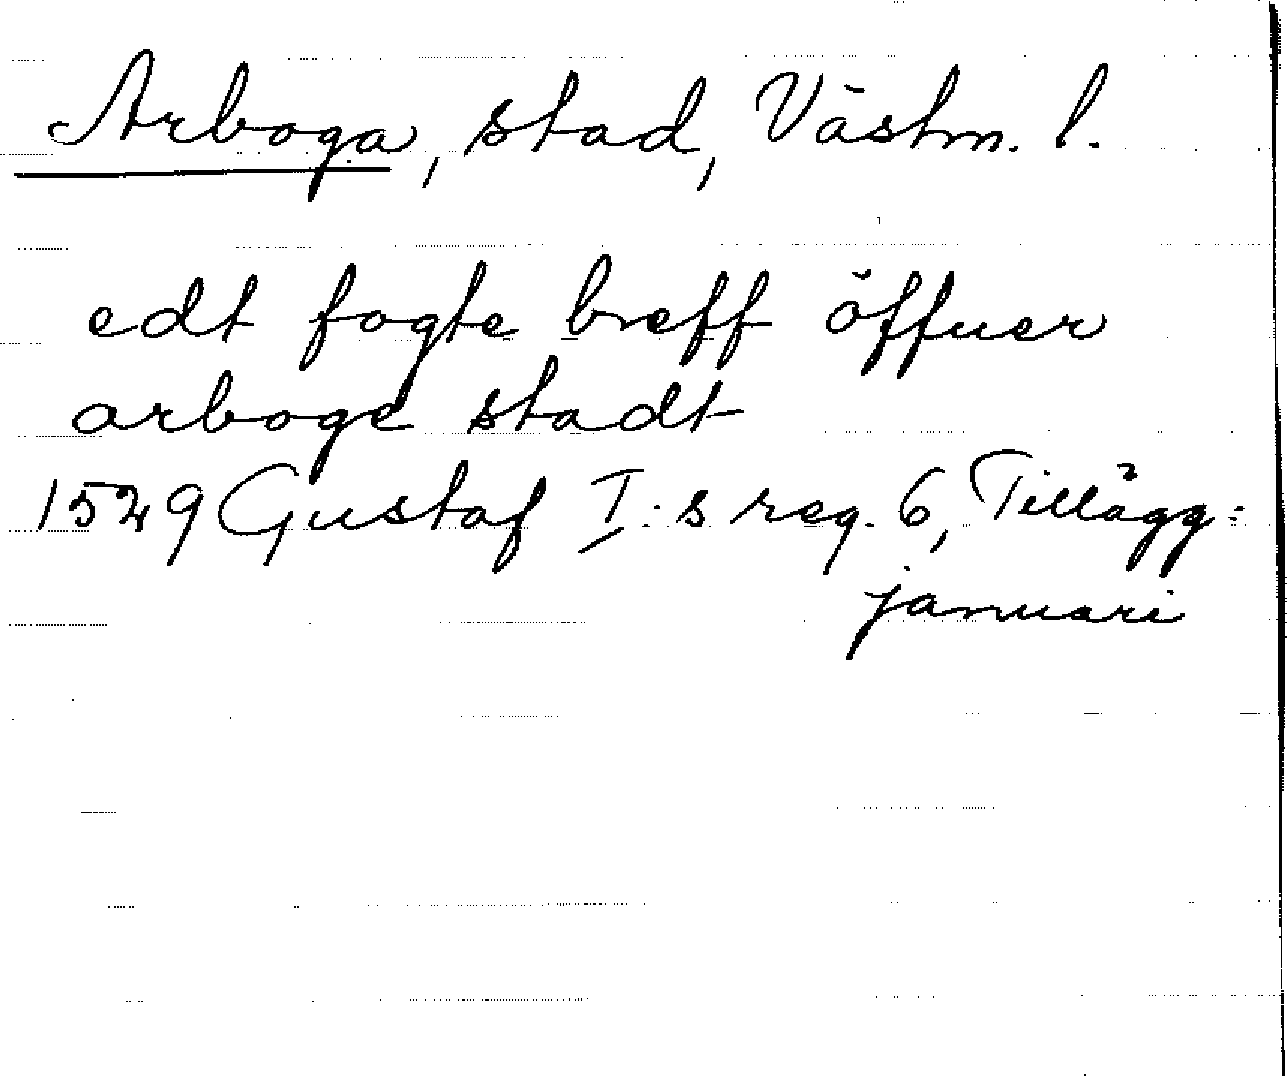 Arboga, stad, Västm. l.
edt fogte breff öffuer
arboge stadt
1529 Gustaf I:s reg. 6, Tillägg:
januari